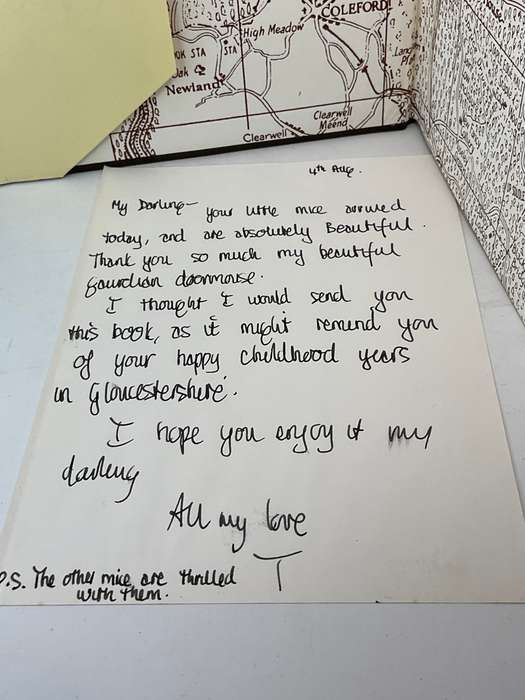 COLEFORD
High Meadow
OK STA
STA
Oak
Newland
Clearwell
Meend
Clearwell
4th Aug.
My Darling – your little mice arrived
today, and are absolutely Beautiful.
Thank you so much my beautiful
Gaurdian doormouse.
I thought I would send you
this book, as it might remind you
of your happy childhood years
in Gloucestershire.
I hope you enjoy it my
darling
All my love
T
P.S. The other mice are thrilled
with them.